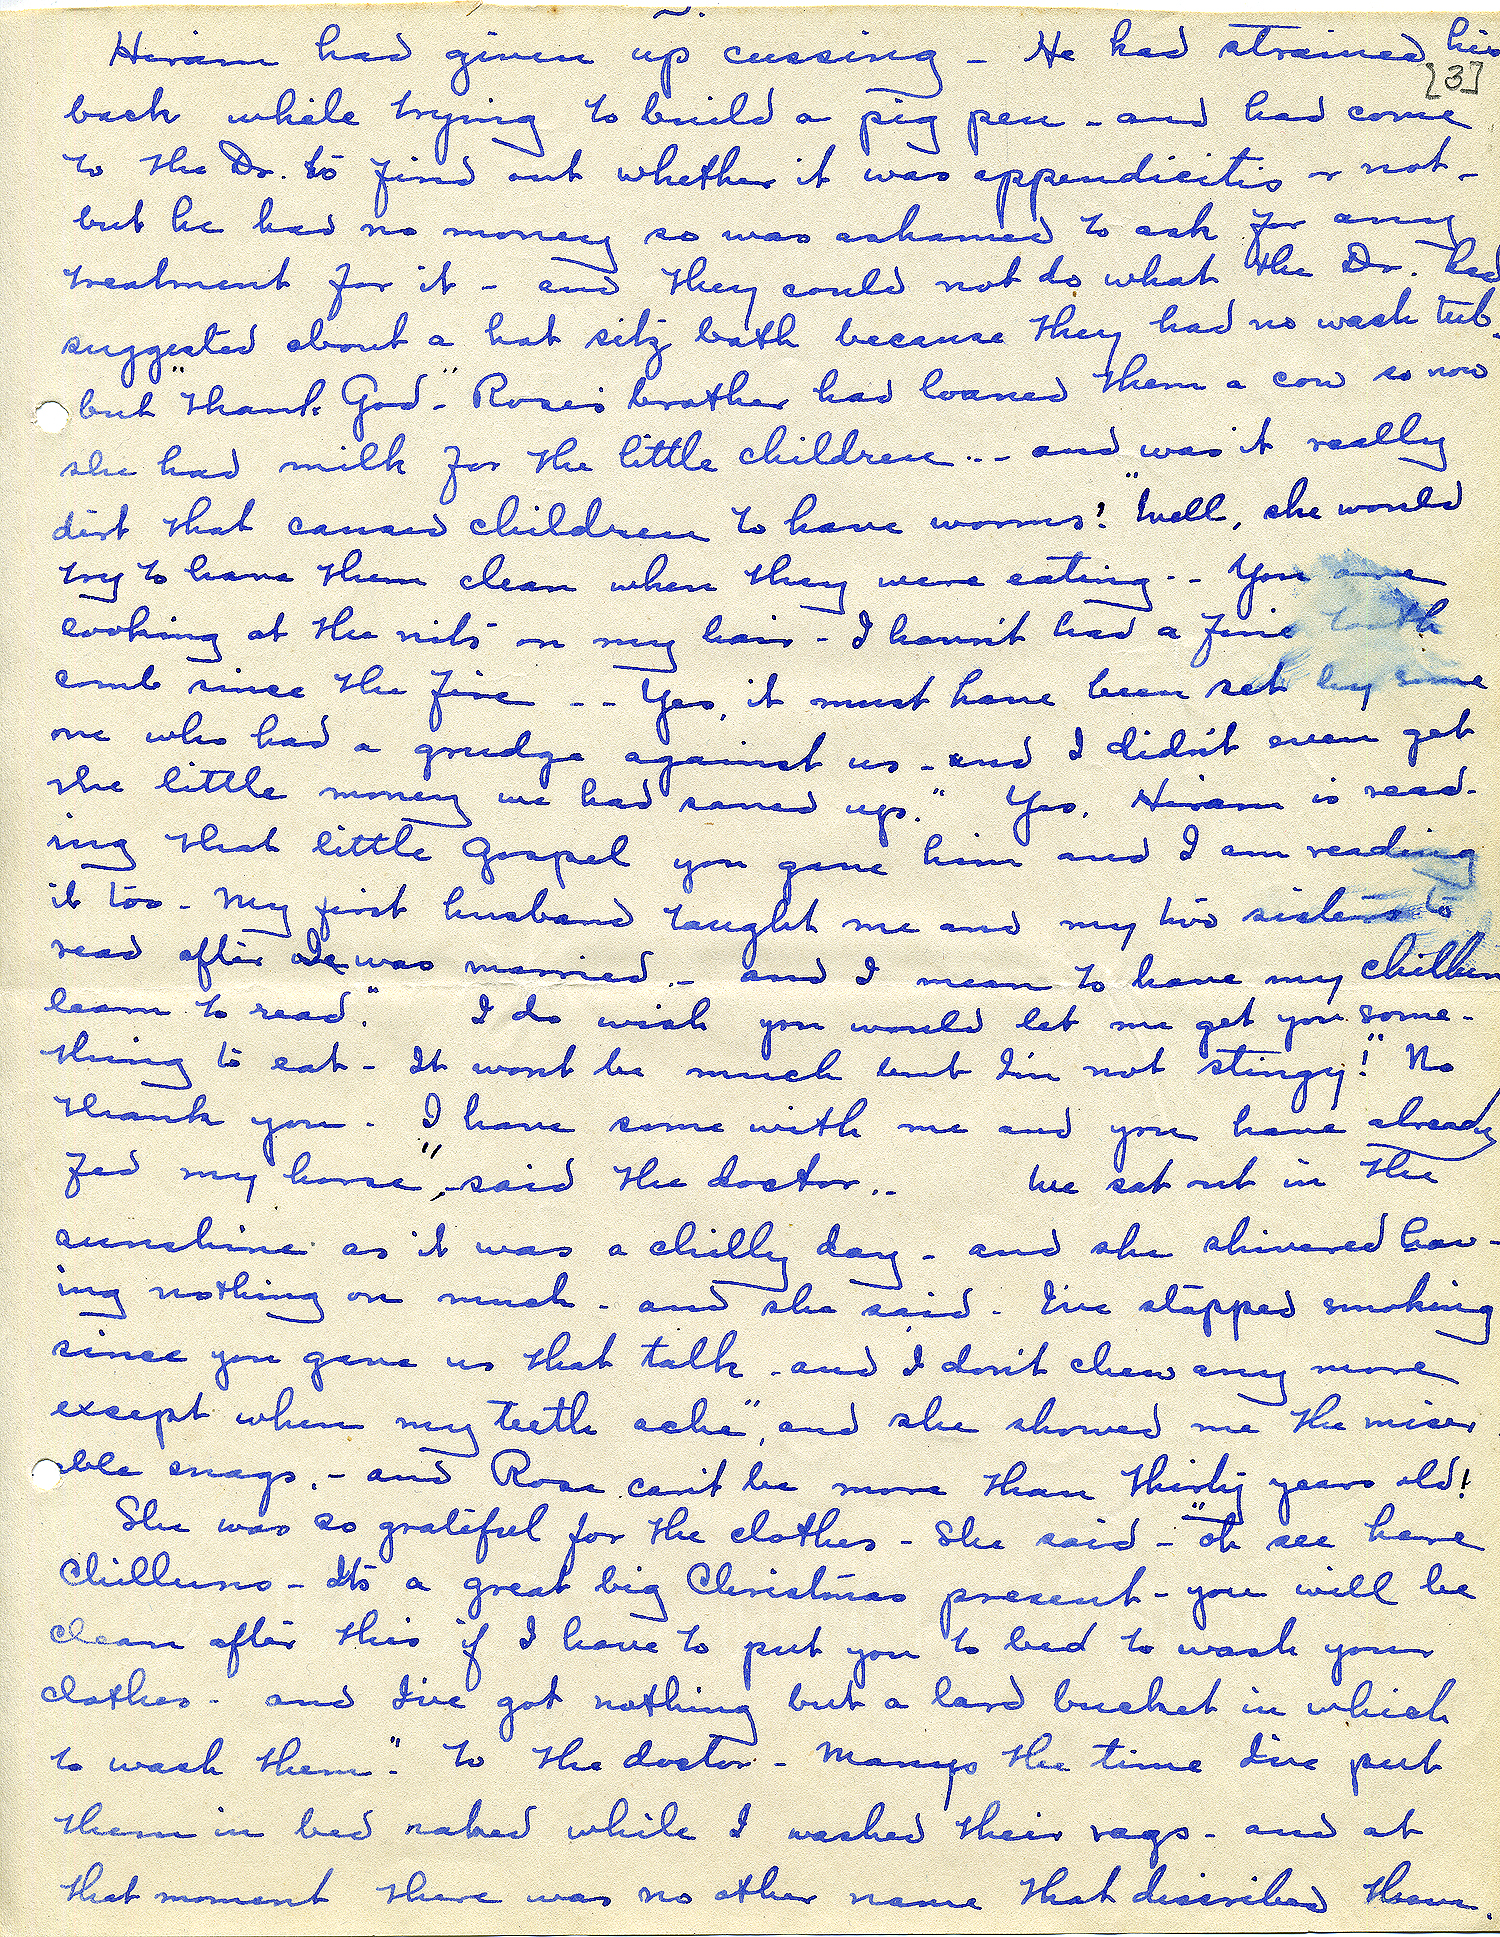 Hiram had given up cussing - He had strained his
[3]
back while trying to build a pig pen - and had come
to the Dr. to find out whether it was appendicitis or not -
but he had no money so was ashamed to ask for any
treatment for it - and they could not do what the Dr. had
suggested about a hot sitz bath because they had no wash tub -
but "Thank God" - Rose's brother had loaned them a cow so now
she had milk for the little children - - and was it really
dirt that caused children to have worms! "Well, she would
try to have them clean when they were eating - - You are
looking at the nits on my hair - I havn't had a fine tooth
comb since the fire - - Yes, it must have been set by some
one who had a grudge against us - and I didn't even get
the little money we had saved up." Yes, Hiram is read-
ing that little Gospel you gave him and I am reading
it too - My first husband taught me and my two sisters to
read after we was married - and I mean to have my chillun
learn to read." I do wish you would let me get you some-
thing to eat - It wont be much but I'm not stingy!" No
thank you - I have some with me and you have already
fed my horse", said the doctor.. We sat out in the
sunshine as it was a chilly day - and she shivered hav-
ing nothing on much - and she said - I've stopped smoking
since you gave us that talk - and I don't chew any more
except when my teeth ache", and she showed me the miser
able snags, - and Rose can't be more than thirty years old!
She was so grateful for the clothes - She said - "oh see here
Chilluns - Its a great big Christmas present - you will be
clean after this if I have to put you to bed to wash your
clothes - and I've got nothing but a lard bucket in which
to wash them" - To the doctor - Manys the time I've put
them in bed naked while I washed their rags - and at
that moment there was no other name that discribed them.